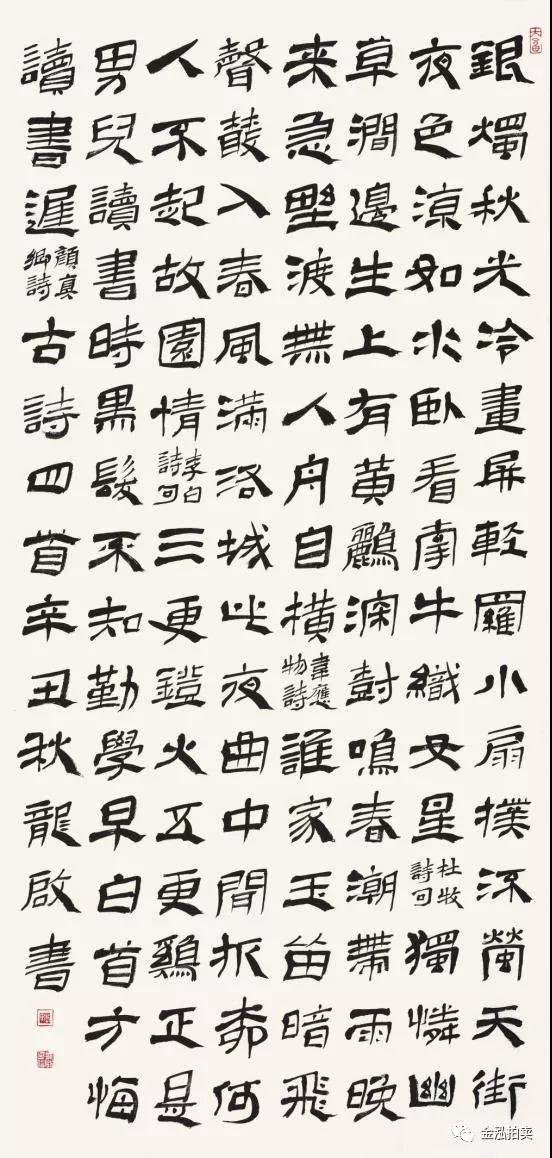 銀燭秋光冷畫屏輕羅小扇撲流螢天街
夜色涼如水臥看牽牛織女星杜牧詩句獨憐幽
草澗邊生上有黃鸝深樹鳴春潮帶雨晚
来急野渡無人舟自橫韋應物詩誰家玉笛暗飛
聲散入春風滿洛城此夜曲中聞折柳何
人不起故園情李白詩句三更鐙火五更鷄正是
男兒讀書時黑髮不知勤學早白首方悔
讀書遲顏真卿詩古詩四首辛丑秋龍啟書
金泓拍卖